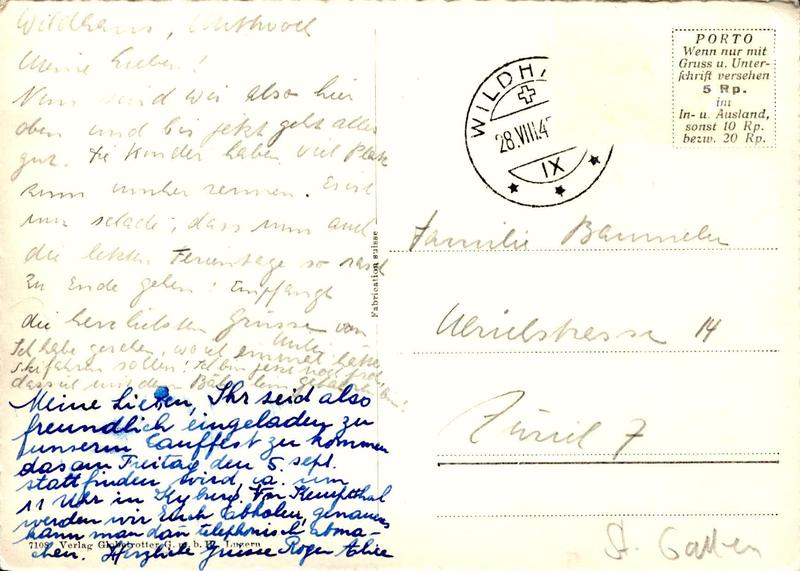 Wildhaus, Mittwoch
Meine Lieben!
Nun sind wir also hier
oben und bis jetzt geht alles
gut. Die Kinder haben viel Platz
zum umher rennen. Es ist
nur schade, dass nun auch
die letzten Ferientage so rasch
zu Ende gehen! Empfangt
die herzlichsten Grüsse von
Ich habe gesehen, wo wir einmal hätten
skifahren sollen! Ich bin jetzt noch froh,
dass wir mit dem
Meine Lieben, Ihr seid also
freundlich eingeladen zu
unserm Tauffest zu kommen
das am Freitag den 5. Sept.
stattfinden wird, ca. um
11 Uhr in Kyburg. Von Kemptthal
werden wir Euch abholen, genaues
kann man dan telephonisch abma-
chen. Herzliche Grüsse Roger Alice
7108 Verlag Globetrotter G. m. b. H., Luzern
Fabrication suisse
WILDHA
28.VIII.4
IX
PORTO
Wenn nur mit
Gruss u. Unter-
schrift versehen
5 Rp.
im
In- u. Ausland,
sonst 10 Rp.
bezw. 20 Rp.
Familie
Ulrichstrasse 14
Zürich 7
St. Gallen